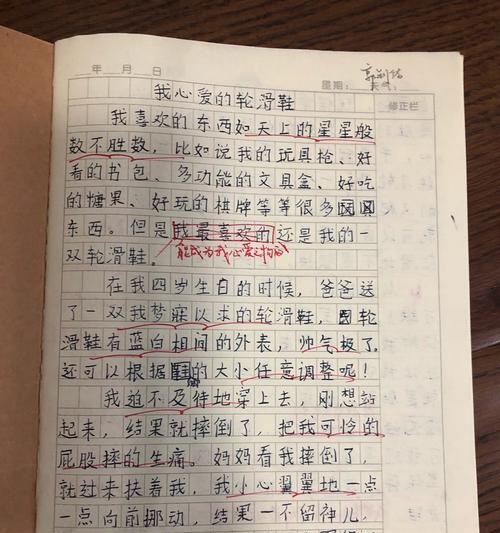 年 月 日
星期:
修正栏
我心爱的轮滑鞋
我喜欢的东西如天上的星星般
数不胜数,比如说我的玩具枪、好
看的书包、多功能的文具盒、好吃
的糖果、好玩的棋牌等等很多
东西。但是我最喜欢的还是我的一
能成为我心爱之物的
双轮滑鞋。
在我四岁生日的时候,爸爸送
了一双我梦寐以求的轮滑鞋,轮
滑鞋有蓝白相间的外表,帅气极了,
还可以根据的大小任意调整呢!
我迫不及待地穿上去,刚想站
起来,结果就摔倒了,把我可怜的
屁股摔的生痛。妈妈看我摔倒了,
就过来扶着我,我小心翼翼地一点
一点向前挪动,结果一不留神儿,